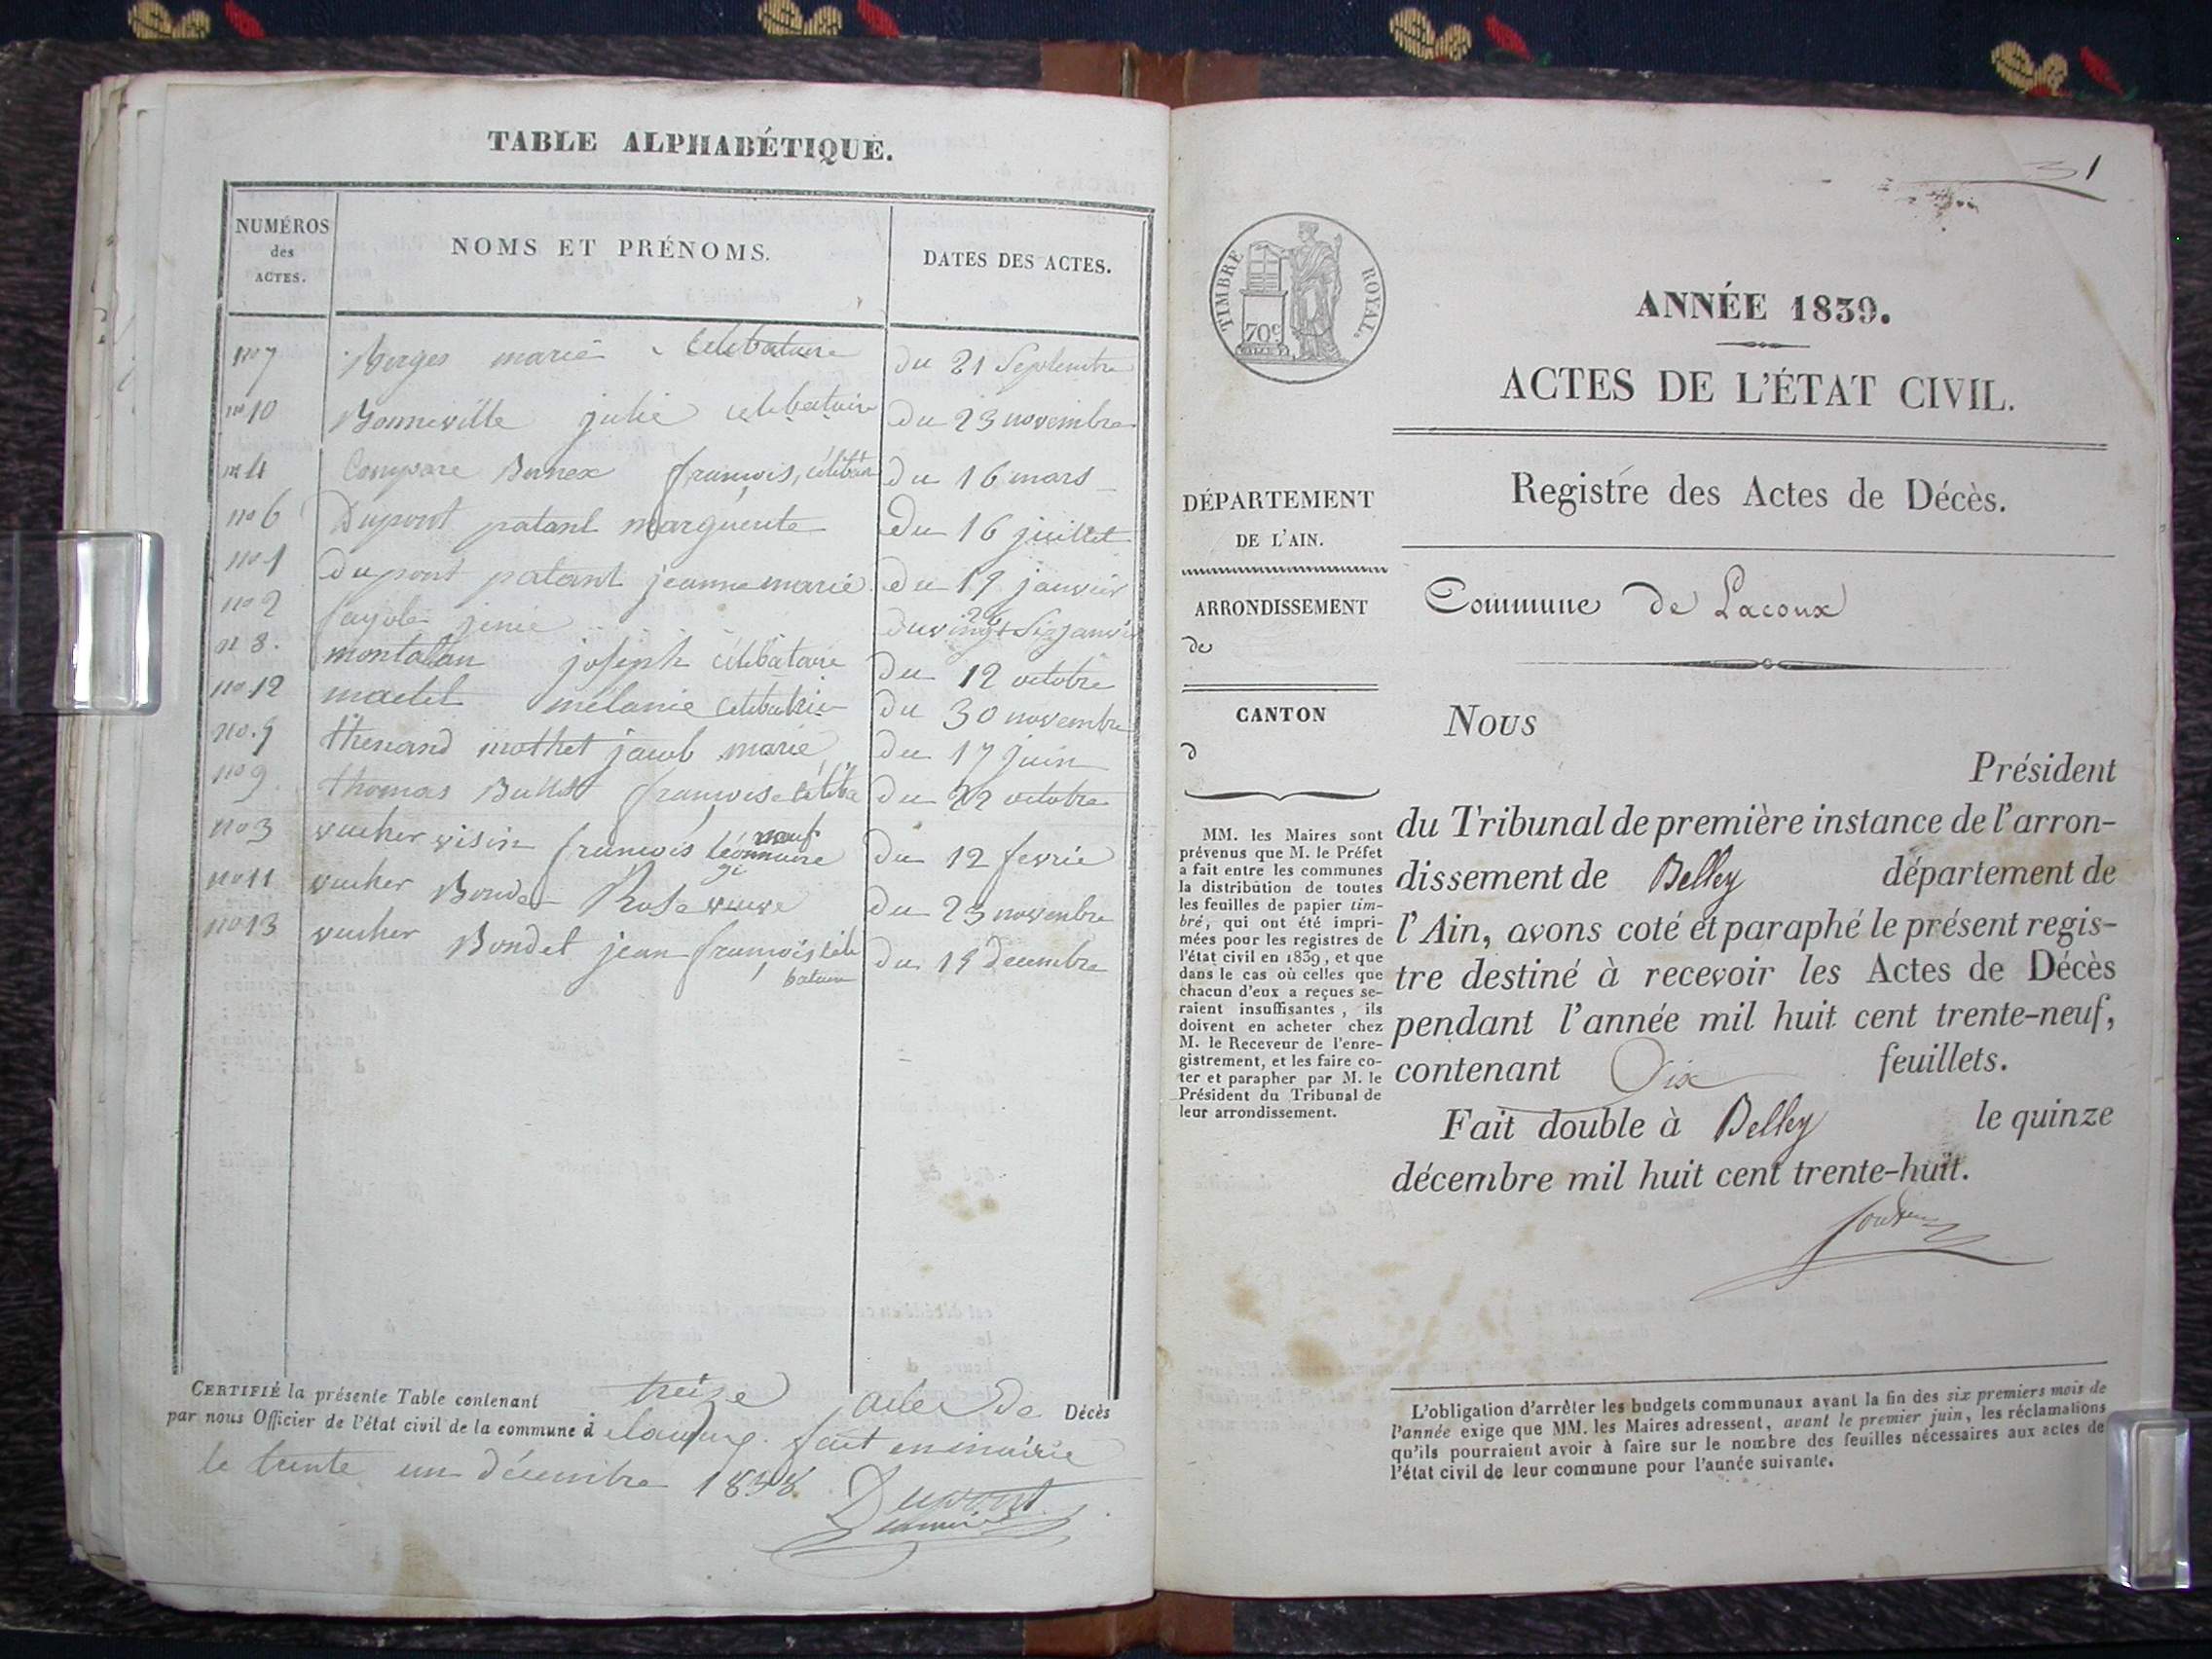 TABLE ALPHABÉTIQUE.
NUMÉROS
des
ACTES.
NOMS ET PRÉNOMS.
DATES DES ACTES.
no 7 Borges marie celibataire du 21 Septembre
no 10 Bonneville julie celibataire du 23 novembre
no 4 Compare Bonnex françois, célibat du 16 mars
no 6 Dupont patant marguerite Du 16 juillet
no 1 dupont patant jeanne marie du 19 janvier
no 2 fayole jenie du vingt Six janvier
26
no 8. montalan joseph célibataire Du 12 octobre
no 12 martel mélanie celibataire du 30 novembre
no. 5 thenand mothet jacob marie du 17 juin
no 9 thomas françoise céliba Du 22 octobre
no 3 vucher visin françois du 12 fevrie
no 11 vucher Bondet Rose veuve du 23 novembre
no 13 vucher Bondet jean françois céli du 19 decembre
bataire
CERTIFIÉ la présente Table contenant treize actes de Décès
par nous Officier de l'état civil de la commune d fait en mairie
le trente un décembre 1838
Dupont
1
TIMBRE ROYAL.
70c
ANNÉE 1839.
ACTES DE L'ÉTAT CIVIL.
Registre des Actes de Décès.
Commune de Lacoux
DÉPARTEMENT
DE L'AIN.
ARRONDISSEMENT
de
CANTON
d
MM. les Maires sont
prévenus que M. le Préfet
a fait entre les communes
la distribution de toutes
les feuilles de papier tim-
bré, qui ont été impri-
mées pour les registres de
l'état civil en 1839, et que
dans le cas où celles que
chacun d'eux a reçues se-
raient insuffisantes, ils
doivent en acheter chez
M. le Receveur de l'enre-
gistrement, et les faire co-
ter et parapher par M. le
Président du Tribunal de
leur arrondissement.
Nous
Président
du Tribunal de première instance de l'arron-
dissement de Belley département de
l'Ain, avons coté et paraphé le présent regis-
tre destiné à recevoir les Actes de Décès
pendant l'année mil huit cent trente-neuf,
contenant Six feuillets.
Fait double à Belley le quinze
décembre mil huit cent trente-huit.
L'obligation d'arrêter les budgets communaux avant la fin des six premiers mois de
l'année exige que MM. les Maires adressent, avant le premier juin, les réclamations
qu'ils pourraient avoir à faire sur le nombre des feuilles nécessaires aux actes de
l'état civil de leur commune pour l'année suivante.